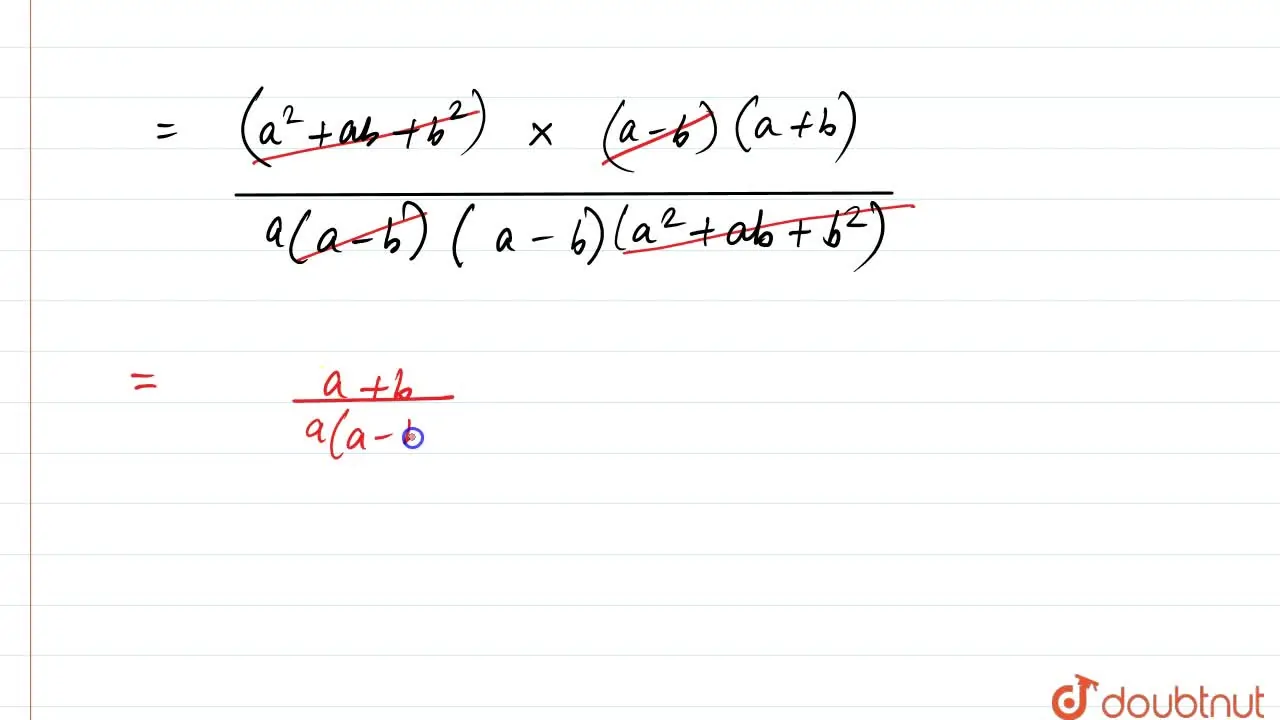 = (a² + ab + b²) × (a - b) (a + b)
a(a - b) ( a - b) (a² + ab + b²)
= a + b
a(a - b
doubtnut